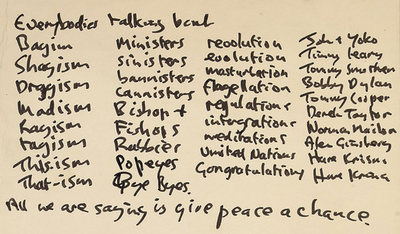 Everybodies talking bout
Bagism
Shagism
Dragism
Madism
Ragism
Tagism
This-ism
That-ism
Ministers
sinisters
bannisters
Cannisters
Bishop +
Fishops
Rabbies
Popeyes
Bye Byes.
revolution
evolution
masturbation
flagellation
regulations
integrations
meditations
United Nations
Congratulations
John + Yoko
Timmy Leary
Tommy Smothers
Bobby Dylan
Tommy Cooper
Derek Taylor
Norman Mailer
Alen Ginsberg
Hare Krisna
Hare Krsna
All we are saying is give peace a chance.